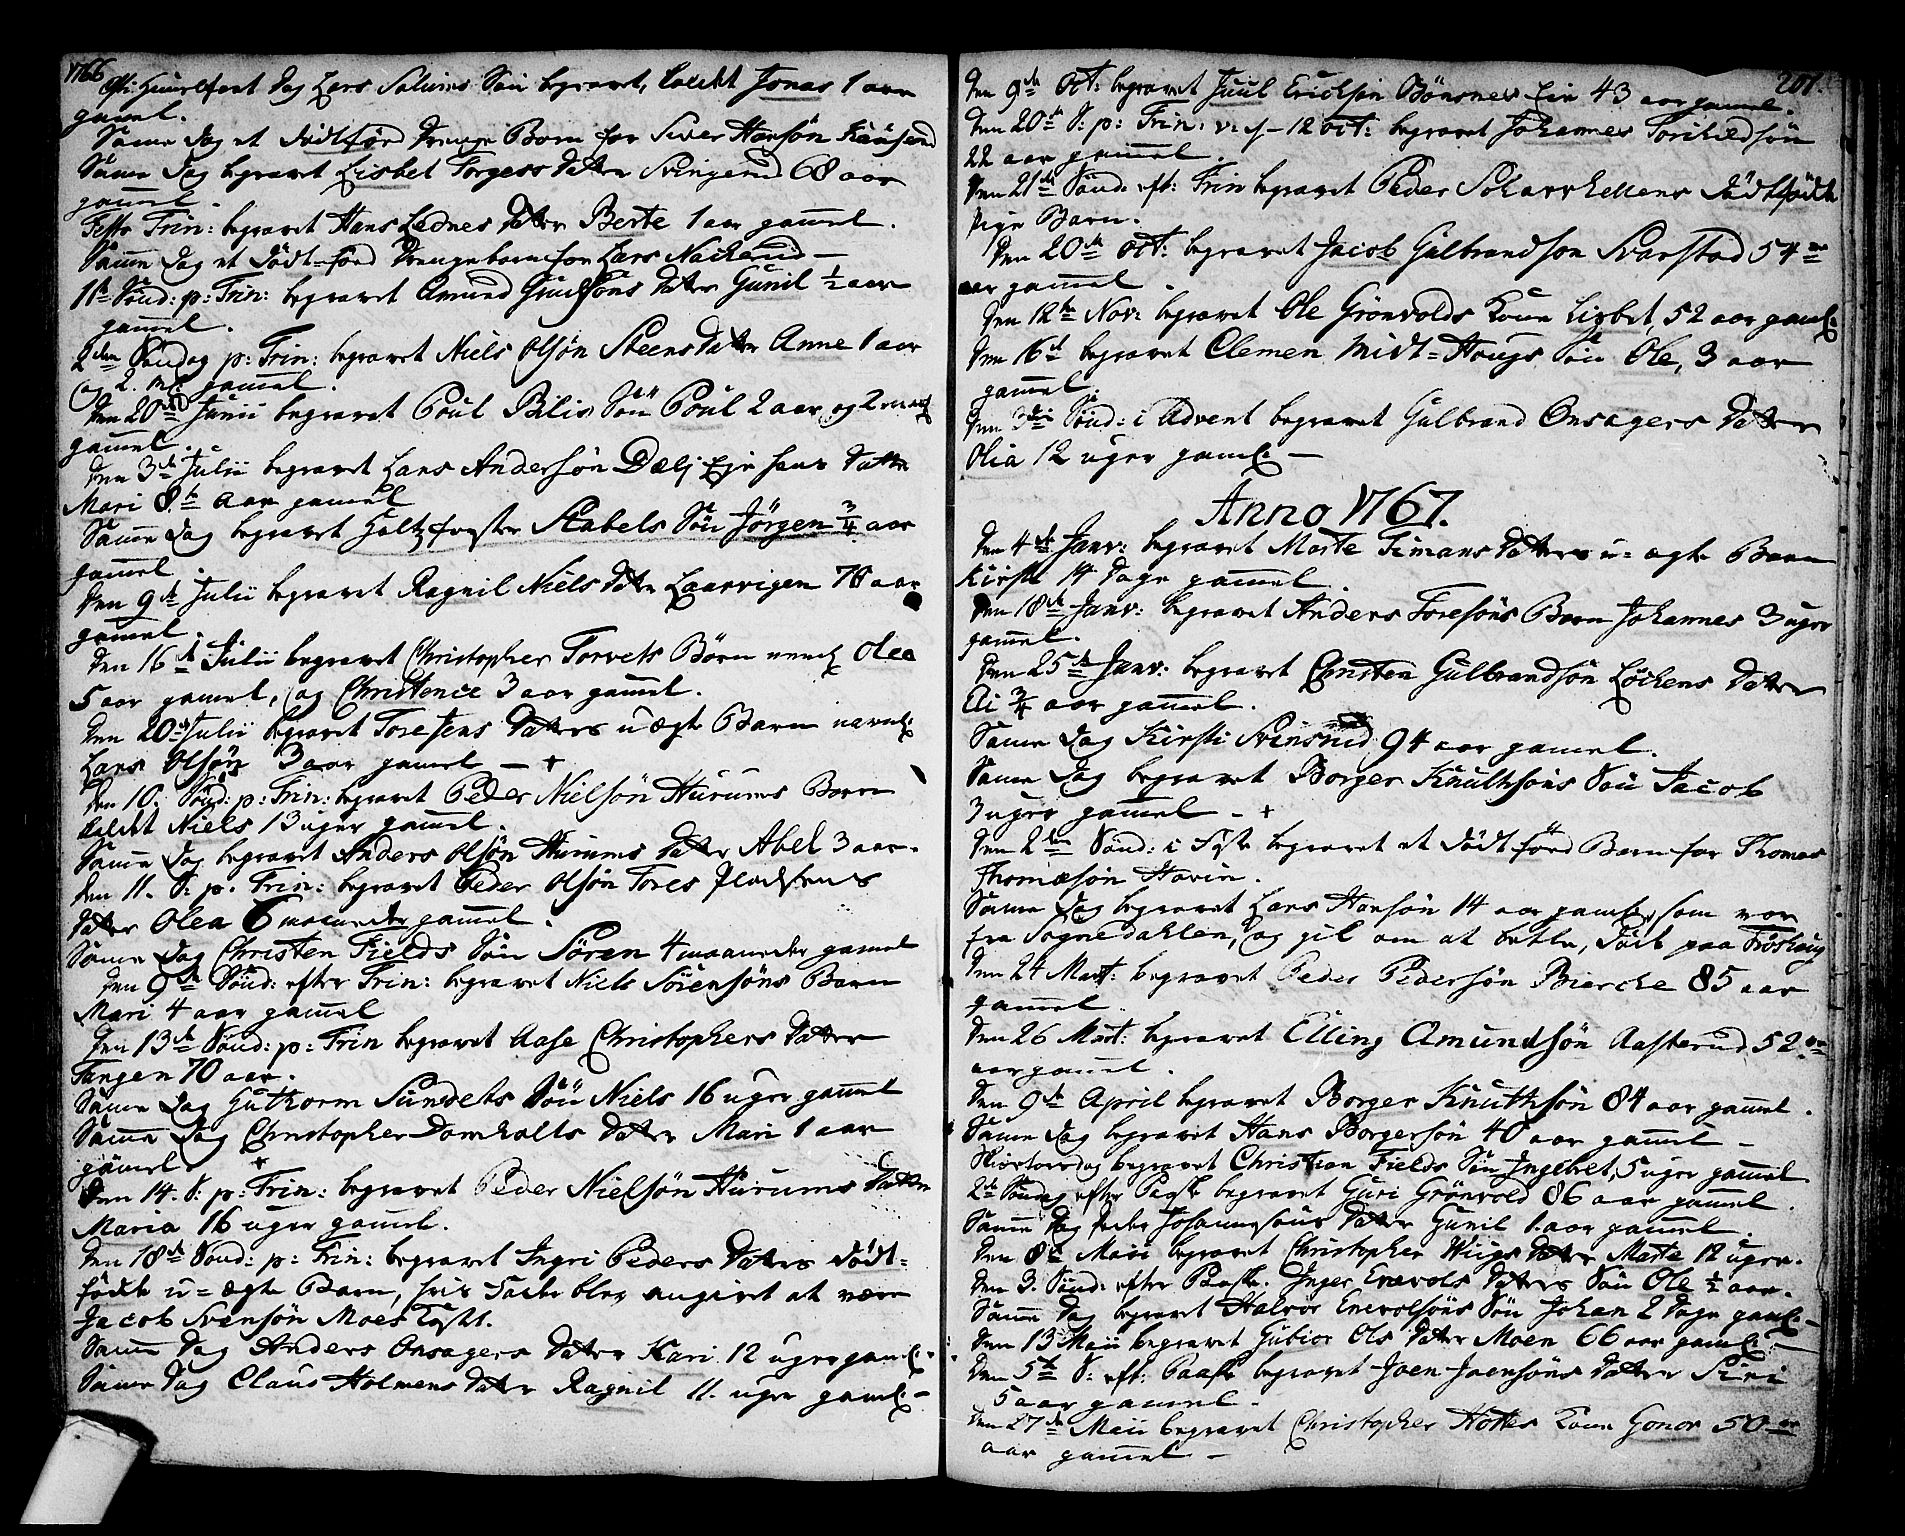 1766
Christi Himmelfart Dag Lars Solums Søn begravet, kaldet Jonas 1 aar
gamel.
Samme Dag et Dødtfød Drenge Barn for Siver Hansøn
Samme Dag begravet Lisbet Torgers Datter Svingerud 68 aar
gamel.
Festo Trin: begravet Hans Ladnes Datter Berte 1 aar gamel.
Samme Dag et Dødt-fød Drengebarn for Lars Nackerud —
1te Sønd: p: Trin: begravet Amund Gudsøns Datter Gunil ½ aar
gamel.
2den Søndag p: Trin: begravet Niels Olsøn Steens Datter Anne 1 aar
og 2. md: gamel.
Den 20de Junii begravet Poul Bilis Søn Poul 2 aar og 2 maaned
gamel.
Den 3de Julii begravet Lars Andersøn Dælj Eje hans Datter
Mari 8te aar gamel
Samme Dag begravet Holtzførster Stabels Søn Jørgen ¾ aar
gamel.
Den 9de Julii begravet Ragnil Niels Datter Laarvigen 70 aar
gamel.
Den 16de Julii begravet Christopher Torvets Børn nemlig Olea
5 aar gamel, og Christence 3 aar gamel.
Den 20de Julii begravet Toresens Datters uægte Barn navnl:
Lars Olsøn 3 aar gamel — +
Den 10. Sønd: p: Trin: begravet Peder Nielsøn Hurums Barn
kaldet Niels 13 uger gamel.
Samme Dag begravet Anders Olsøn Hurums Datter Abel 3 aar.
Den 11. S: p. Trin: begravet Peder Olsøn Tores Pladsens
Datter Olea 6 maaneder gamel.
Samme Dag Christen Fields Søn Søren 4 maaneder gamel
Den 9de Sønd: efter Trin: begravet Niels Sørensøns Barn
Mari 4 aar gamel
Den 13de Sønd: p: Trin begravet Aase Christophers Datter
Tangen 70 aar.
Samme Dag Guthorm Sundets Søn Niels 16 uger gamel
Samme Dag Christopher Domholts Datter Mari 1 aar
gamel. +
Den 14. S: p: Trin: begravet Peder Nielsøn Hurums Datter
Maria 16 uger gamel.
Den 18de Sønd: p: Trin: begravet Ingri Peders Datters Dødt-
fødte u-ægte Barn, hvis Fader blev angivet at være
Jacob Svensøn Moes
Samme Dag Anders Onsagers Datter Kari 12 uger gaml:
Samme Dag Claus Holmens Datter Ragnil 11. uger gaml: —
201.
Den 9de Oct: begravet Juul Erichsøn Bønsnes Eie 43 aar gamel.
Den 20de S: p: Trin: v: s — 12 oct: begravet Johannes Torchildsøn
22 aar gamel.
Den 21de Sønd: eft: Trin begravet Peder Scharrkellens Dødtfødte
Pige Barn.
Den 20de Oct: begravet Jacob Gulbrandsøn Svarstad 54
aar gamel.
Den 12te Nov: begravet Ole Grønvolds Kone Lisbet, 52 aar gaml:
Den 16de begravet Clemen Midt-Hougs Søn Ole, 3 aar
gamel.
Den 3die Sønd: i Advent begravet Gulbrand Onsagers Datter
Olia 12 uger gaml: —
Anno 1767.
Den 4de Janv: begravet Marte Timans Datters u-ægte Barn
Kirsti 14 Dage gamel.
Den 18de Janv: begravet Anders Toresøns Barn Johannes 3 uger
gamel.
Den 25de Janv: begravet Christen Gulbrandsøn Løckens Datter
Eli ¾ aar gamel.
Samme Dag Kirsti Svinsrud 94 aar gamel.
Samme Dag begravet Borger Knuthsøns Søn Jacob
3 uger gamel — +
Den 2den Sønd: i Faste begravet et Dødt født Barn for Thomas
Thomæsøn Havin.
Samme Dag begravet Lars Hansøn 14 aar gamel, som var
fra Sognedahlen, og gik om at betle, døde paa Frøshaug
Den 24 Mart: begravet Peder Pedersøn Biercke 85 aar
gamel
Den 26 Mart: begravet Elling Amundsøn Aasterud 52
aar gamel.
Den 9de April begravet Borger Knuthsøn 84 aar gamel.
Samme Dag begravet Hans Borgersøn 40 aar gamel —
Skiertorsdag begravet Christian Fields Søn Ingebret, 5 uger gamel
2de Søndag efter Paaske begravet Guri Grønvold 86 aar gamel.
Samme Dag Peder Johannesøns Datter Gunil 1 aar gamel.
Den 8de Maii begravet Christopher Wiigs Datter Marte 12 uger.
Den 3. Sønd: efter Paaske. Inger Enevols Datters Søn Ole ½ aar.
Samme Dag begravet Halvor Enevolsøns Søn Johan 2 Dage gaml: —
Den 13 Maii begravet Gubiør Ols Datter Moen 66 aar gaml: —
Den 5te S: eft: Paaske begravet Joen Joensøns Datter Siri
5 aar gamel.
Den 27de Maii begravet Christopher Hottes Kone Gonor 50
aar gamel —